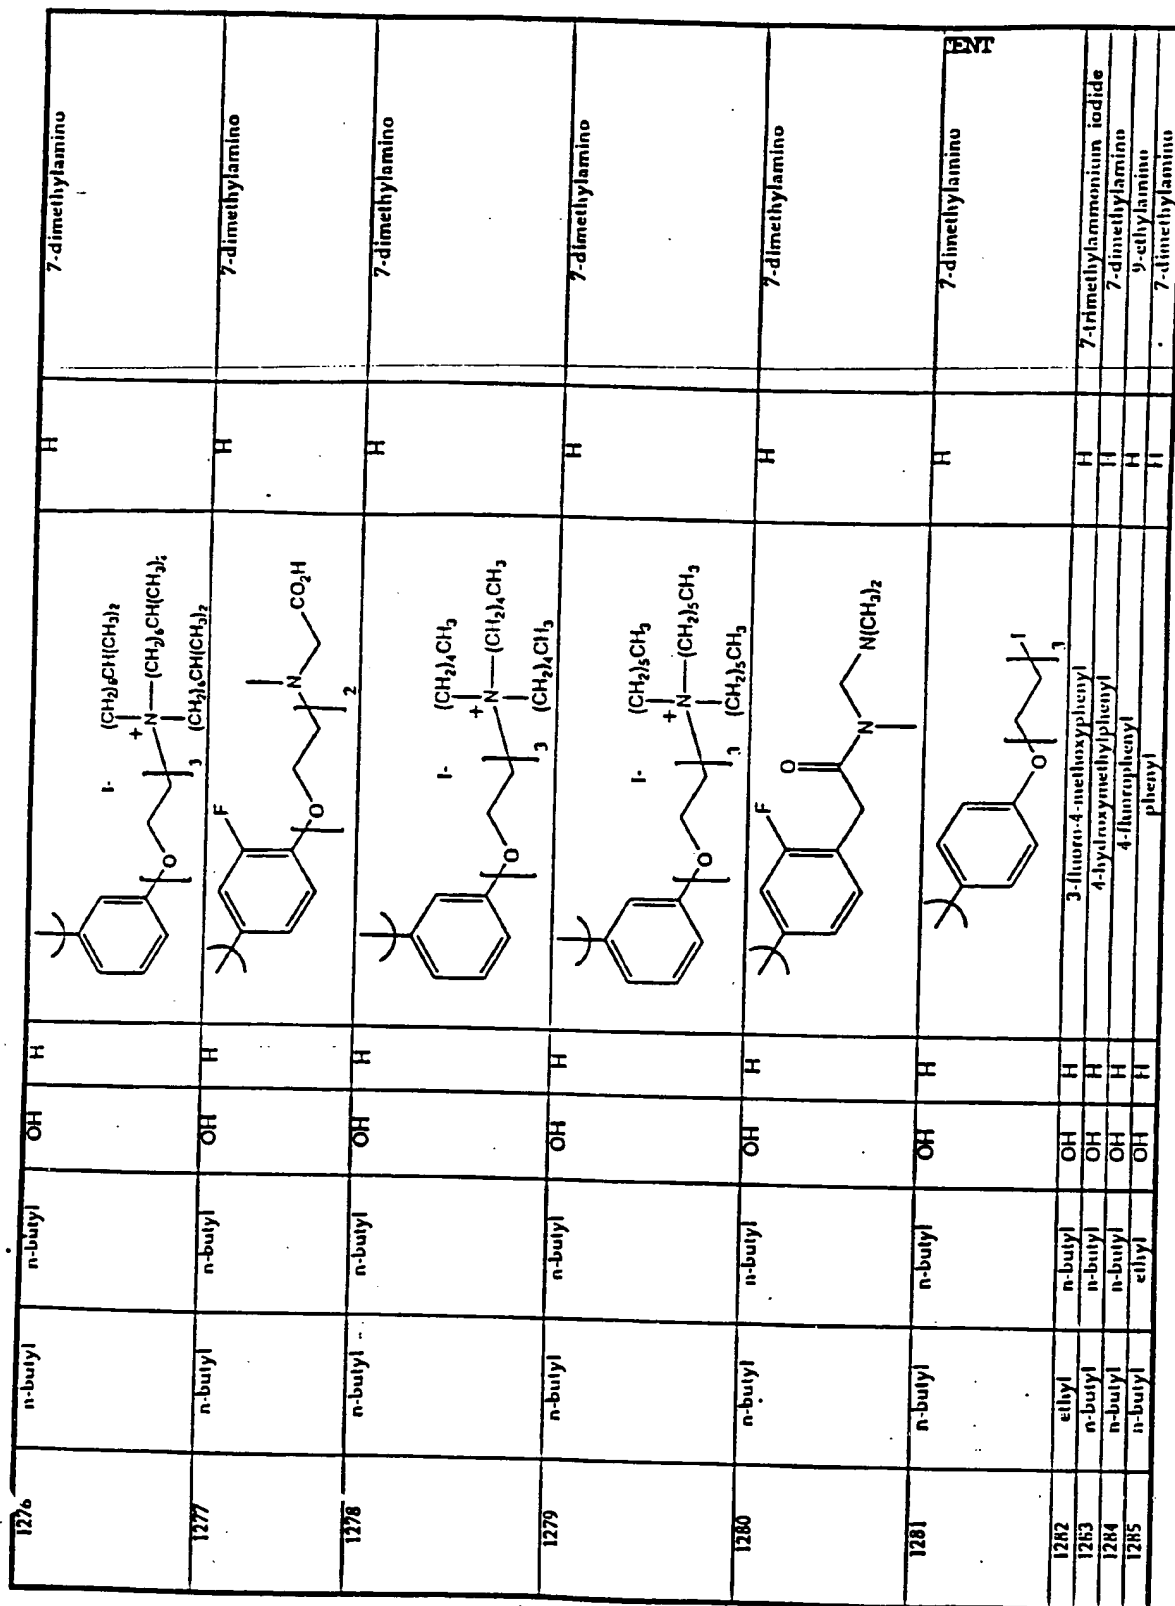 1276 n-butyl n-butyl OH H I- (CH2)6CH(CH3)2 +N (CH2)6CH(CH3)2 (CH2)6CH(CH3)2 O 3 H 7-dimethylamino
1277 n-butyl n-butyl OH H F O N CO2H 2 H 7-dimethylamino
1278 n-butyl n-butyl OH H I- (CH2)4CH3 +N (CH2)4CH3 (CH2)4CH3 O 3 H 7-dimethylamino
1279 n-butyl n-butyl OH H I- (CH2)5CH3 +N (CH2)5CH3 (CH2)5CH3 O 3 H 7-dimethylamino
1280 n-butyl n-butyl OH H F O N N(CH3)2 H 7-dimethylamino
1281 n-butyl n-butyl OH H O I 3 H 7-dimethylamino
1282 ethyl n-butyl OH H 3-fluoro-4-methoxyphenyl H 7-trimethylammonium iodide
1283 n-butyl n-butyl OH H 4-hydroxymethylphenyl H 7-dimethylamino
1284 n-butyl n-butyl OH H 4-fluorophenyl H 9-ethylamino
1285 n-butyl ethyl OH H phenyl H 7-dimethylamino